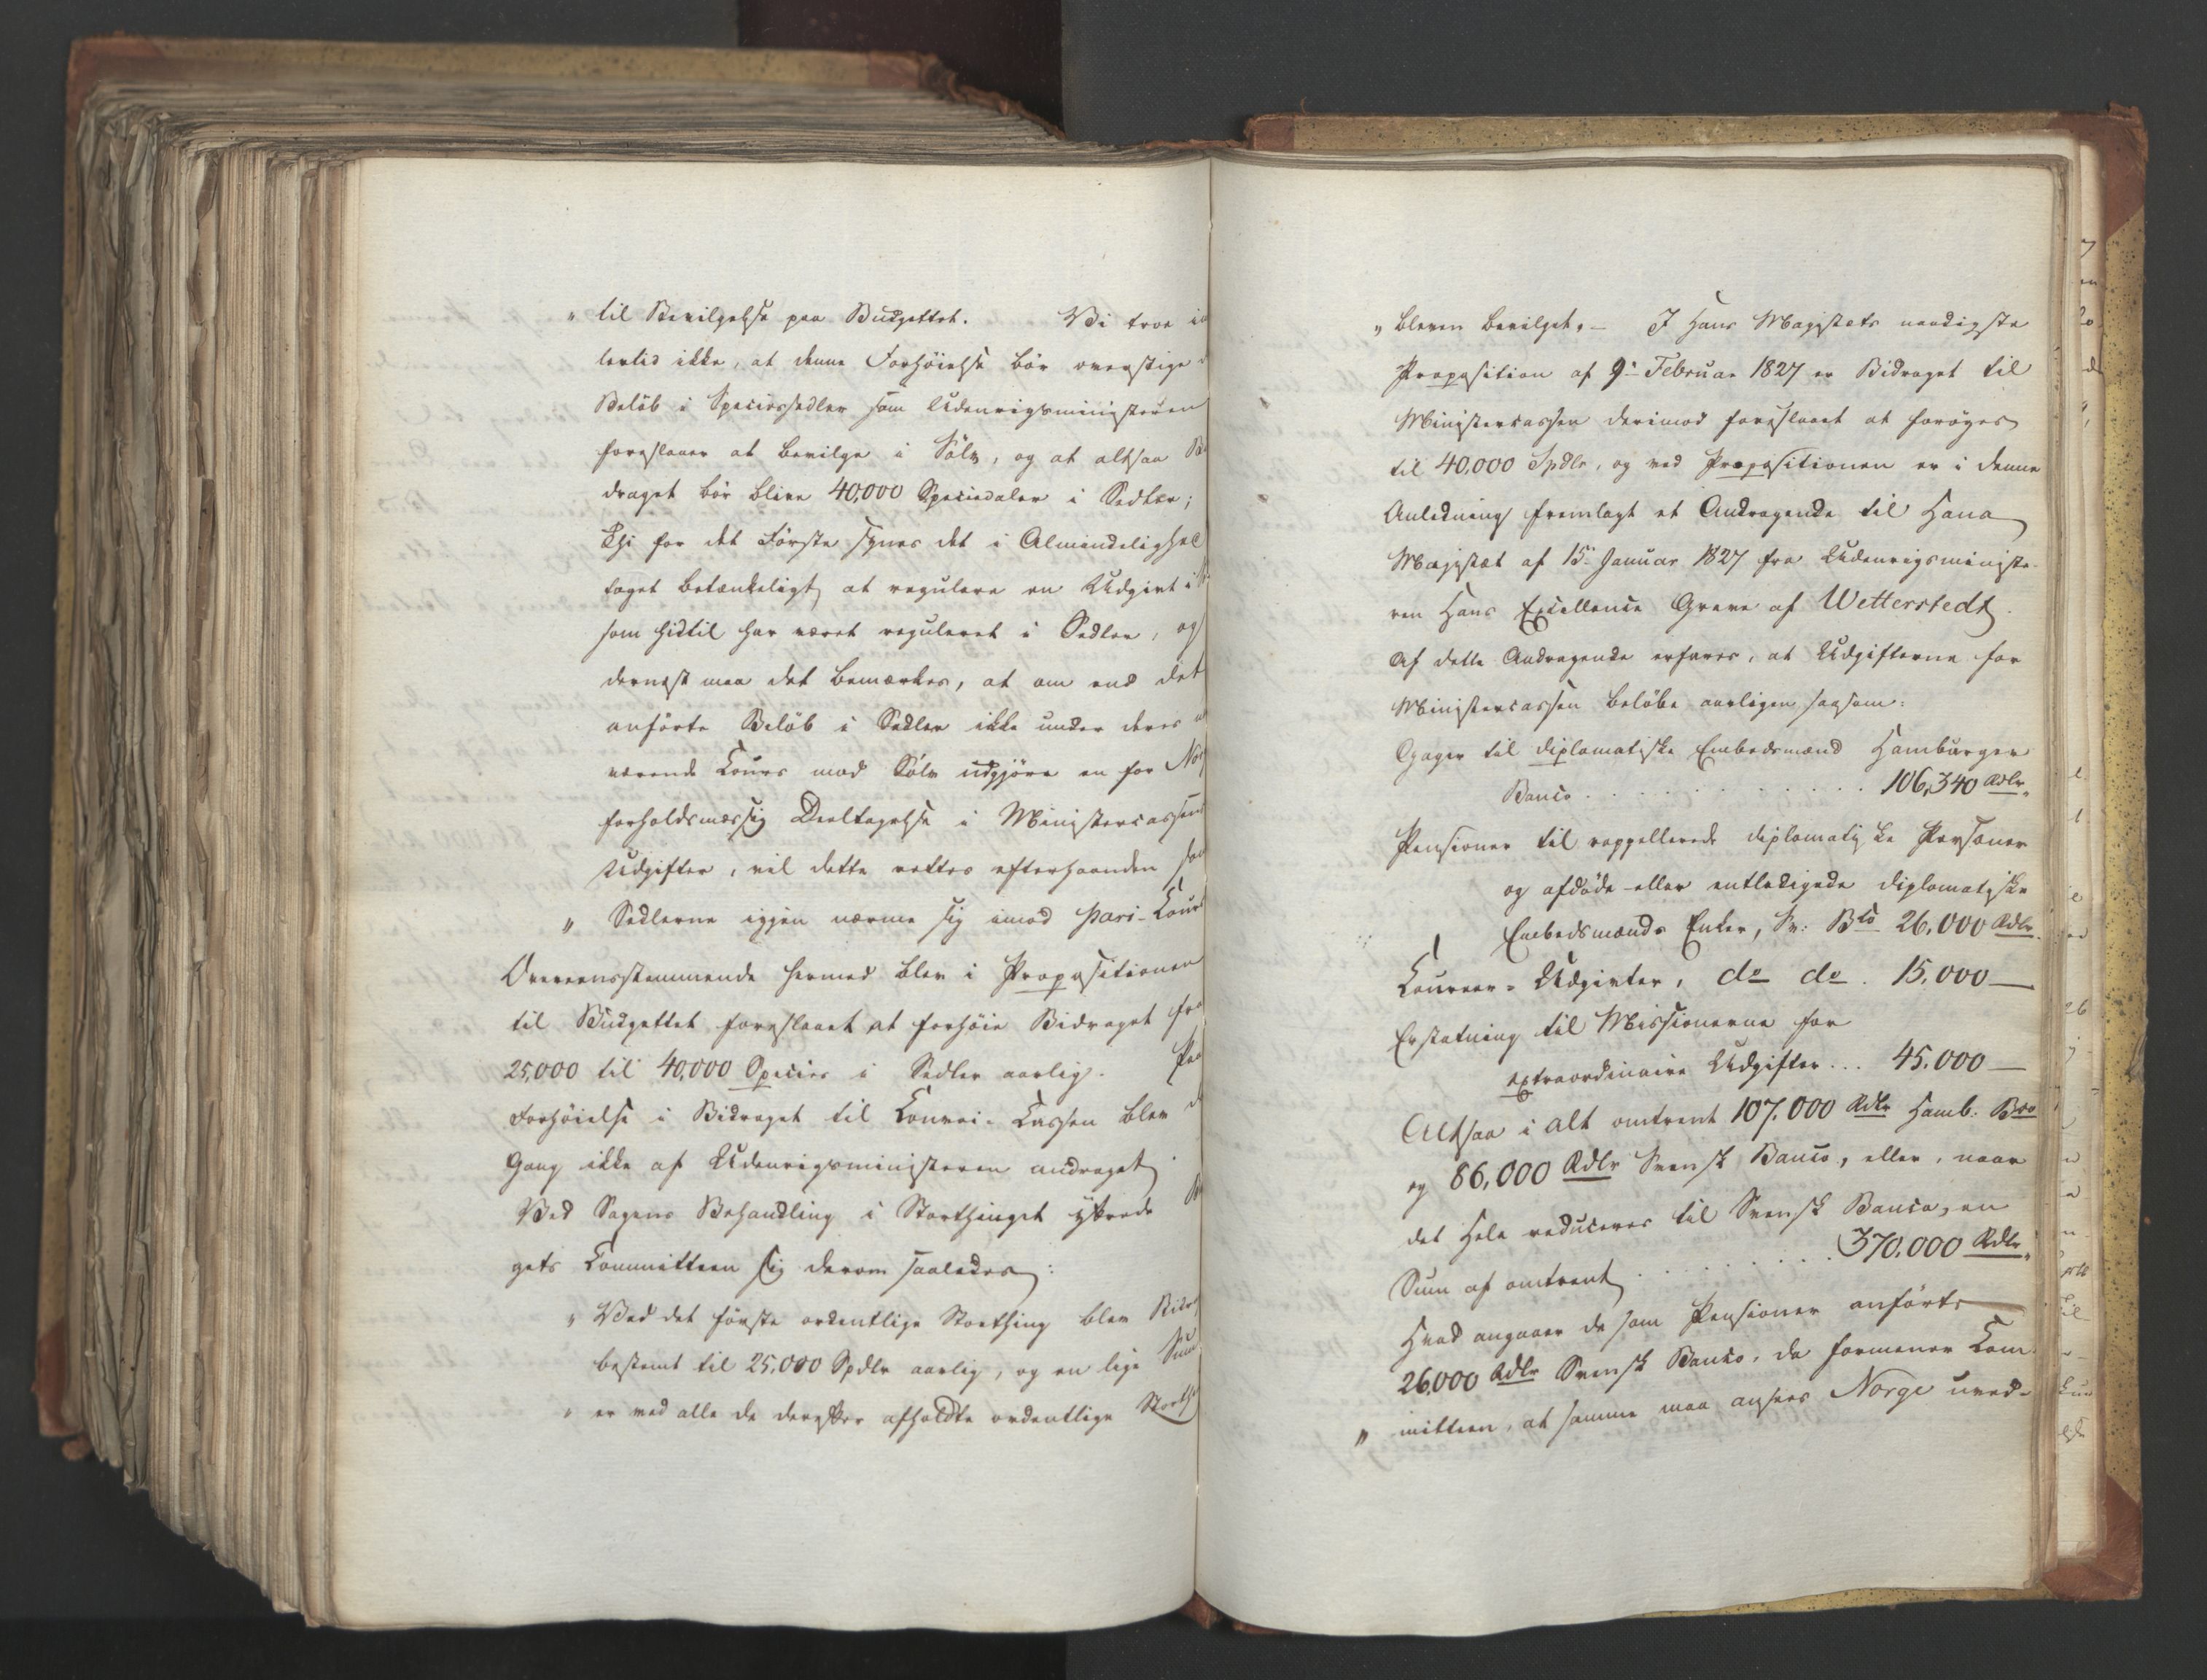 " til Bevilgelse paa Budgettet. Vi troe im
lertid ikke, at denne Forhöielse bör overstige d
Belöb i Speciessedler som Udenrigsministeren
foreslaaer at bevilge i Sölv, og at altsaa Bi
draget bör blive 40,000 Speciedaler i Sedler;
thi for det Förste synes det i Almindelighed
taget betænkeligt at regulere en Udgivt i
som hidtil har været reguleret i Sedler, og
dernæst maa det bemærkes, at om end det
anförte Belöb i Sedler ikke under deres nu
værende Cours mod Sölv udgjöre en for Nor
forholdsmæssig Deeltagelse i Ministercassens
Udgifter, vil dette rettes efterhaanden som
" Sedlerne igjen nærme sig imod pari-Cours
Overeensstemmende hermed blev i Propositionen
til Budgettet foreslaaet at forhöie Bidraget fra
25,000 til 40,000 Species i Sedler aarlig. Paa
Forhöielse i Bidraget til Convoi-Cassen blev d
Gang ikke af Udenrigsministeren andraget.
Ved Sagens Behandling i Storthinget yttrede
gets Committeen sig derom saaledes:
" Ved det förste ordentlige Storthing blev Bidra
bestemt til 25,000 Spdlr aarlig, og en lige Sum
" er ved alle de derefter afholdte ordentlige Storth
" bleven bevilget. - I Hans Majestæts naadigste
Proposition af 9de Februar 1827 er Bidraget til
Ministercassen derimod foreslaaet at foröges
til 40,000 Spdlr, og ved Propositionen er i denne
Anledning fremlagt et Andragende til Hans
Majestæt af 15 Januar 1827 fra Udenrigsministe-
ren Hans Excellence Greve af Wetterstedt.
Af dette Andragende erfares, at Udgifterne for
Ministercassen belöbe aarligen saasom:
Gager til diplomatiske Embedsmænd Hamburger
Banco . . . . . . . . . . 106,340 Rdlr.
Pensioner til rappellerede diplomatiske Personer
og afdöde eller entledigede diplomatiske
Embedsmænds Enker, Sv: Bco 26,000 Rdlr.
Coureer-Udgivter, do do. 15,000 —
Erstatning til Missionerne for
extraordinaire Udgifter... 45,000 —
Altsaa i alt omtrent 107,000 Rdlr Hamb. Bco
og 86,000 Rdlr Svensk Banco, eller, naar
det Hele reduceres til Svensk Banco, en
Sum af omtrent . . . . . . . . 370,000 Rdlr.
Hvad angaaer de som Pensioner anförte
26,000 Rdlr Svensk Banco, da formener Com-
" mitteen, at samme maa ansees Norge uved-